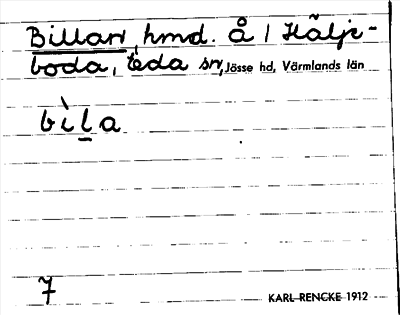 Billan, hmd. Å 1 Hälje-
boda, Eda sn, Jösse hd, Värmlands län
bìl̲a
7
KARL RENCKE 1912